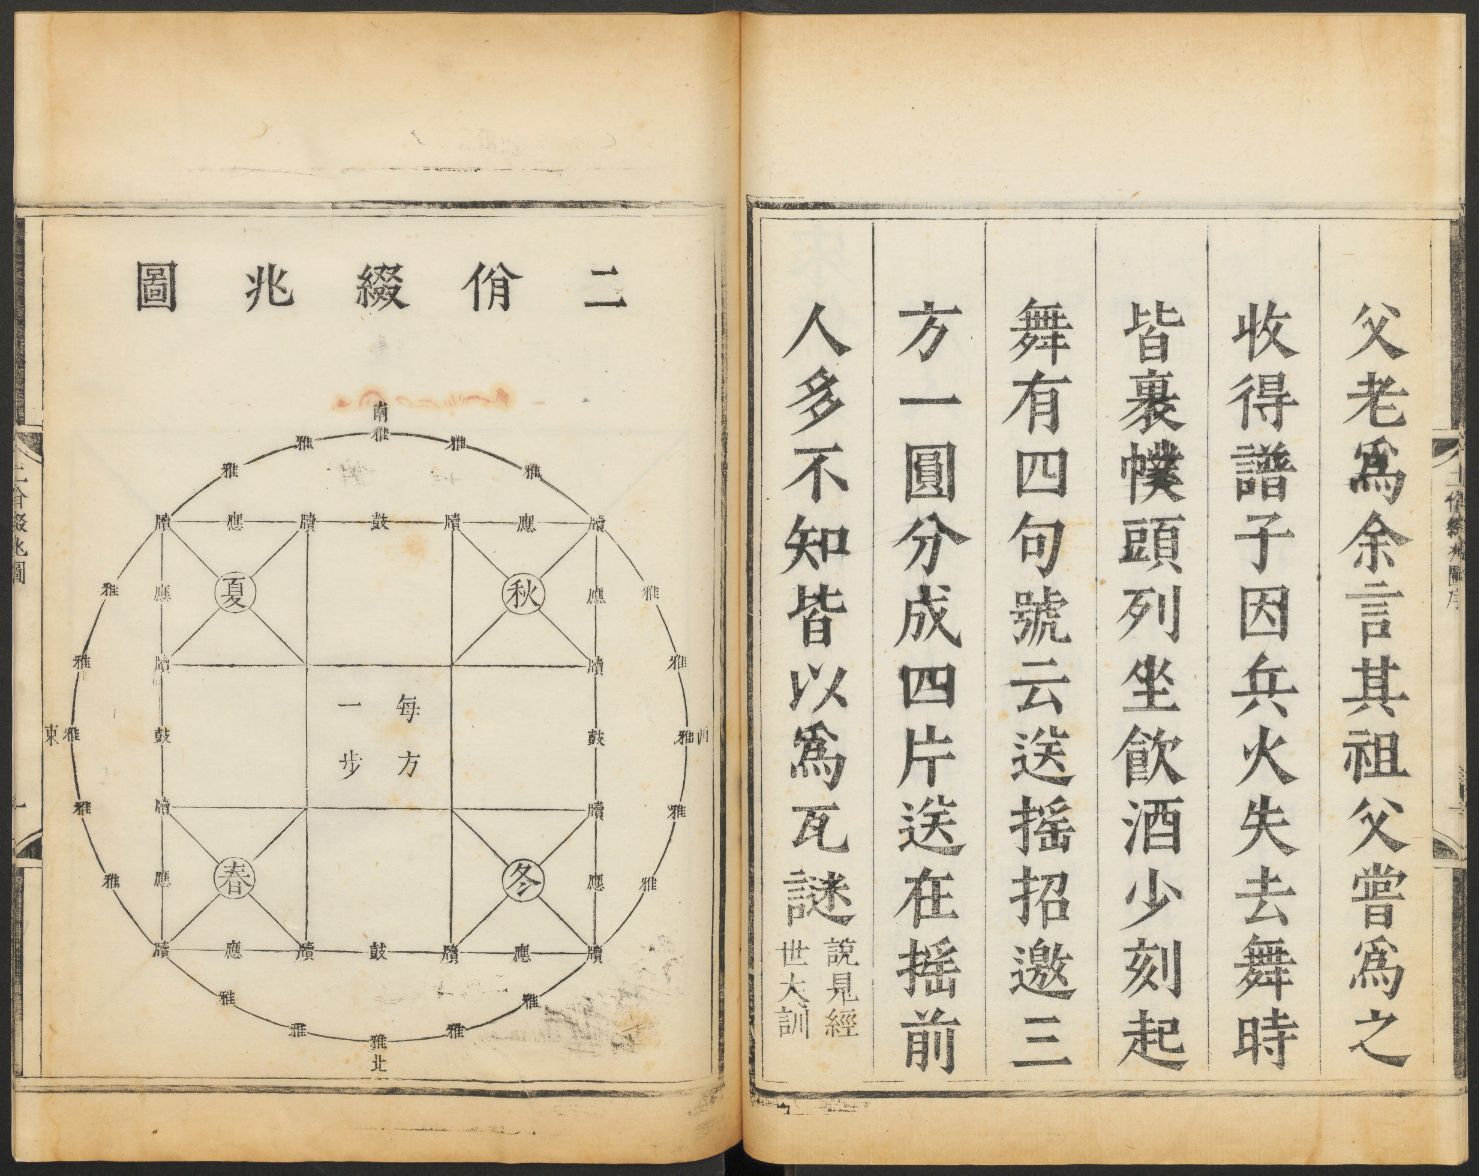 父老爲余言其祖父嘗爲之
收得譜子因兵火失去舞時
皆裹幞頭列坐飲酒少刻起
舞有四句號云送搖招邀三
方一圓分成四片送在搖前
人多不知皆以爲瓦謎
說見經
世大訓
二佾綴兆圖
南
雅
雅 雅
雅 雅
牘 應 牘 鼓 牘 應 牘
雅 應 夏 秋 應 雅
雅 牘 牘 雅
每方
一步
東 雅 鼓 鼓 雅 西
雅 牘 牘 雅
雅 應 春 冬 應 雅
牘 應 牘 鼓 牘 應 牘
雅 雅
雅 雅
雅
北
二佾綴兆圖